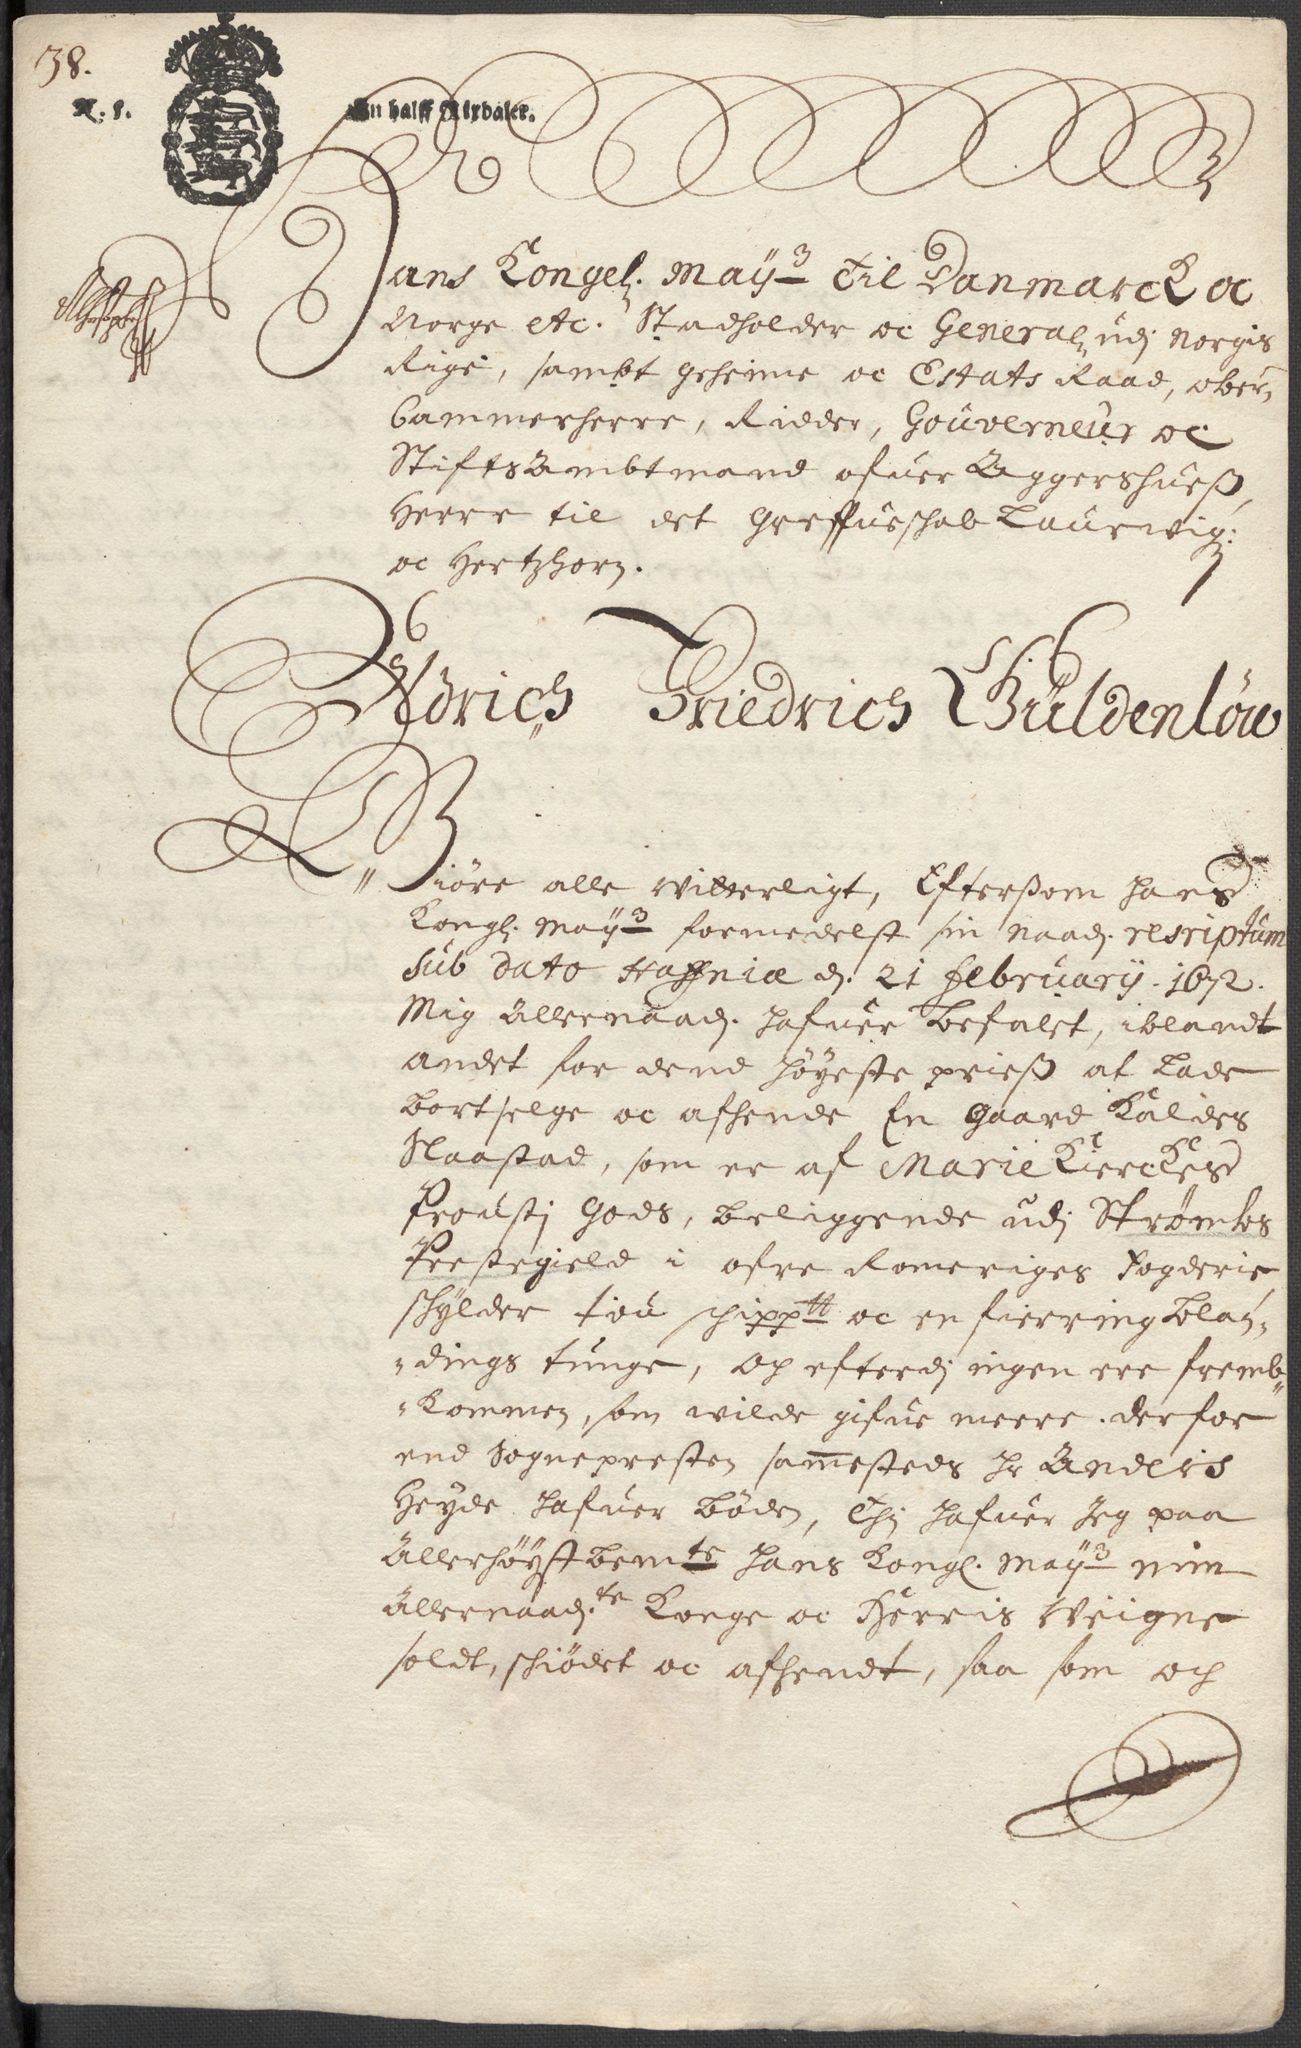 38.
N. 1. En halff Rixdaler.
Hans Kongel. Maytz til Danmarck oc
Norge etc. Stadholder oc General udj Norgis
Rige, sambt geheime oc Estats Raad, ober-
Cammerherre, Ridder, Gouverneur oc
Stiftsambtmand ofuer Aggershuess,
Herre til det Greffueschab Laurwig:
oc Hertzhorn.
Uldrich Friedrich Güldenlöw
Giöre alle Vitterligt, Eftersom hans
Kongl. Maytz formedelst sin naad. rescriptum
sub dato Haffniæ d. 21 February. 1672.
Mig allernaad. hafuer befalet, iblandt
andet for dend höyeste priess at lade
bortselge oc afhende En gaard Kaldes
Naastad, som er af Marie Kierckes
Proustj Gods, beliggende udj Strömbs
Prestegield i ofre Romeriges Fogderie
schylder tou schippd oc en fierring blan-
dings tunge, och efterdj ingen ere fremb-
kommen, som wilde gifue meere derfor
end Sognepresten sammesteds hr Anders
Heyde hafuer böden, Thj hafuer Jeg paa
Allerhöystbemte hans Kongl. Maytz min
Allernaad.te Konge oc Herris Veigne
soldt, schiödet oc afhendt, saa som och